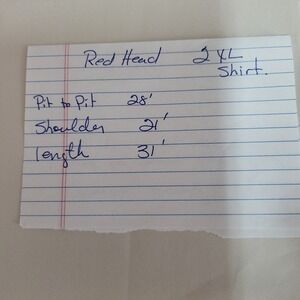 Red Head 2XL
Shirt.
Pit to Pit 28'
Shoulder 21'
length 31'